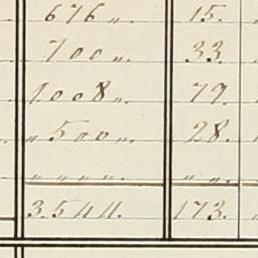 676 „. 15.
700 „. 33.
1008 „. 79.
„ 500 „. 28.
„ „ „ „. „ „.
3.544. 173.